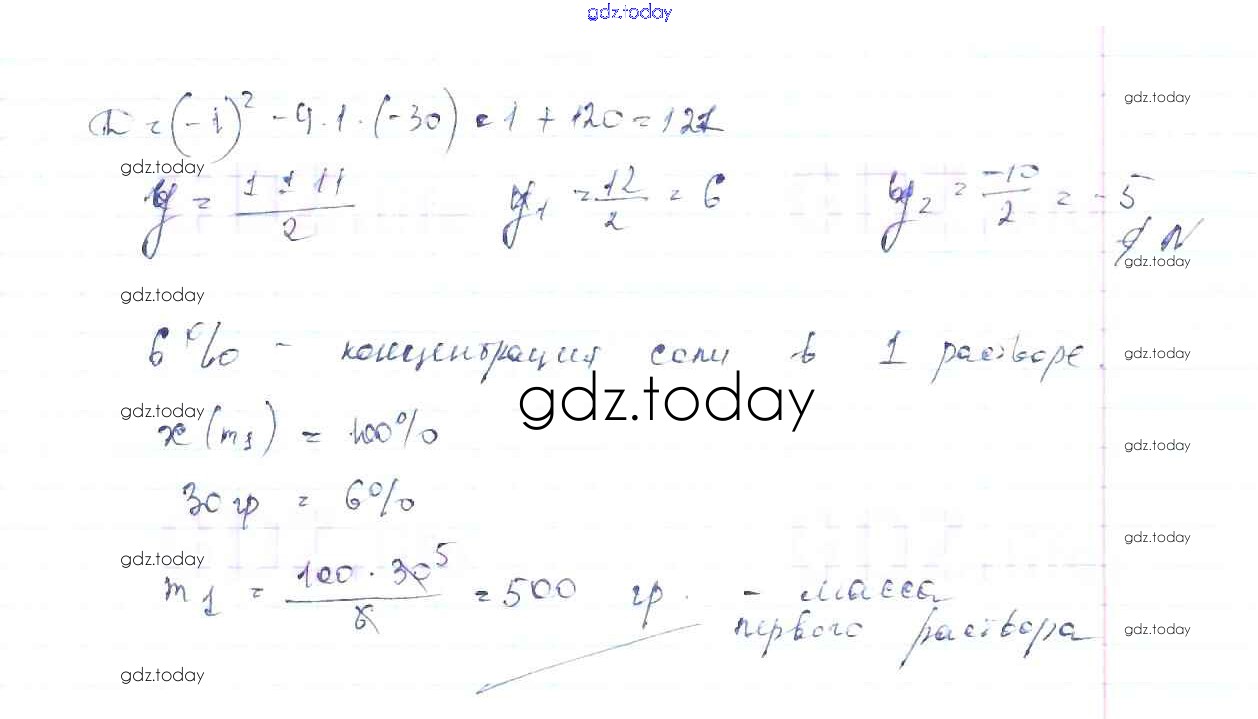 gdz.today
D = (-1)² - 4·1·(-30) = 1 + 120 = 121
gdz.today
gdz.today
y = (1 ± 11)/2 y₁ = 12/2 = 6 y₂ = -10/2 = -5
∉ N
gdz.today
gdz.today
6% - концентрация соли в 1 растворе.
gdz.today
gdz.today
gdz.today
x (m₁) = 100%
gdz.today
30 гр = 6%
gdz.today
gdz.today
m₁ = (100·30⁵)/6 = 500 гр. - масса
первого раствора
gdz.today
gdz.today